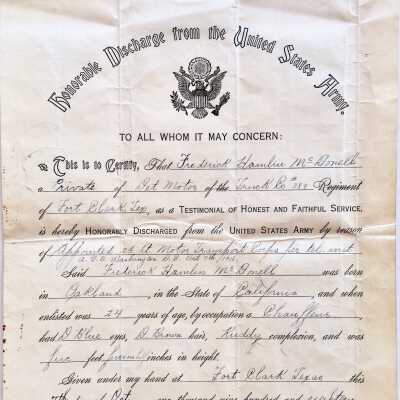 Honorable Discharge from the United States Army.
TO ALL WHOM IT MAY CONCERN:
This is to Certify, That Frederick Hamlin McDonell
a Private of Det Motor of the Truck Co # 282 Regiment
of Fort Clark Tex, as a Testimonial of Honest and Faithful Service,
is hereby Honorably Discharged from the United States Army by reason
of Appointed 2d Lt Motor Transport Corps per tel. inst
A. G. O. Washington D. C. Oct 7th 1918.
Said Frederick Hamlin McDonell was born
in Oakland, in the State of California, and when
enlisted was 24 years of age, by occupation a Chauffeur,
had D. Blue eyes, D. Brown hair, Ruddy complexion, and was
five feet inches in height.
Given under my hand at Fort Clark Texas this
7th day of Oct, one thousand nine hundred and eighteen